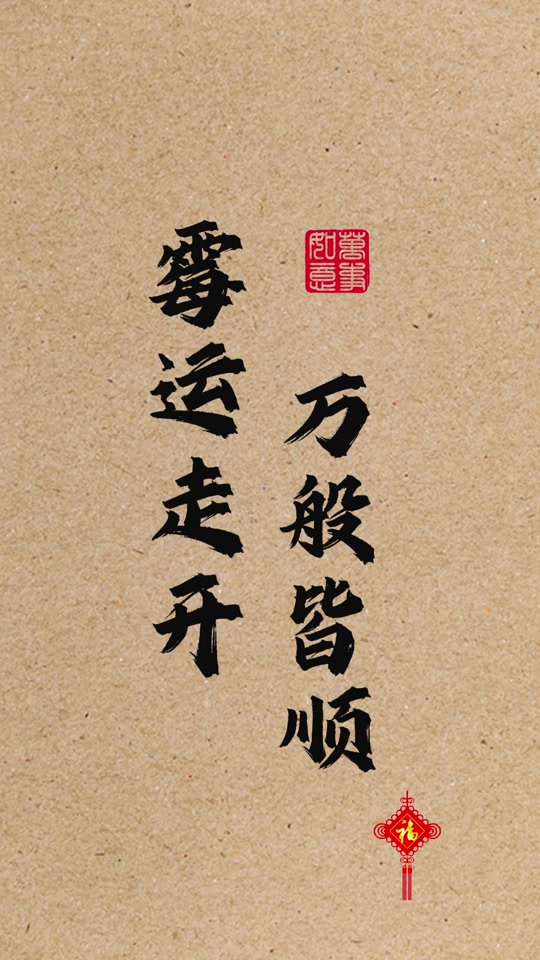 萬事如意
万般皆顺
霉运走开
福